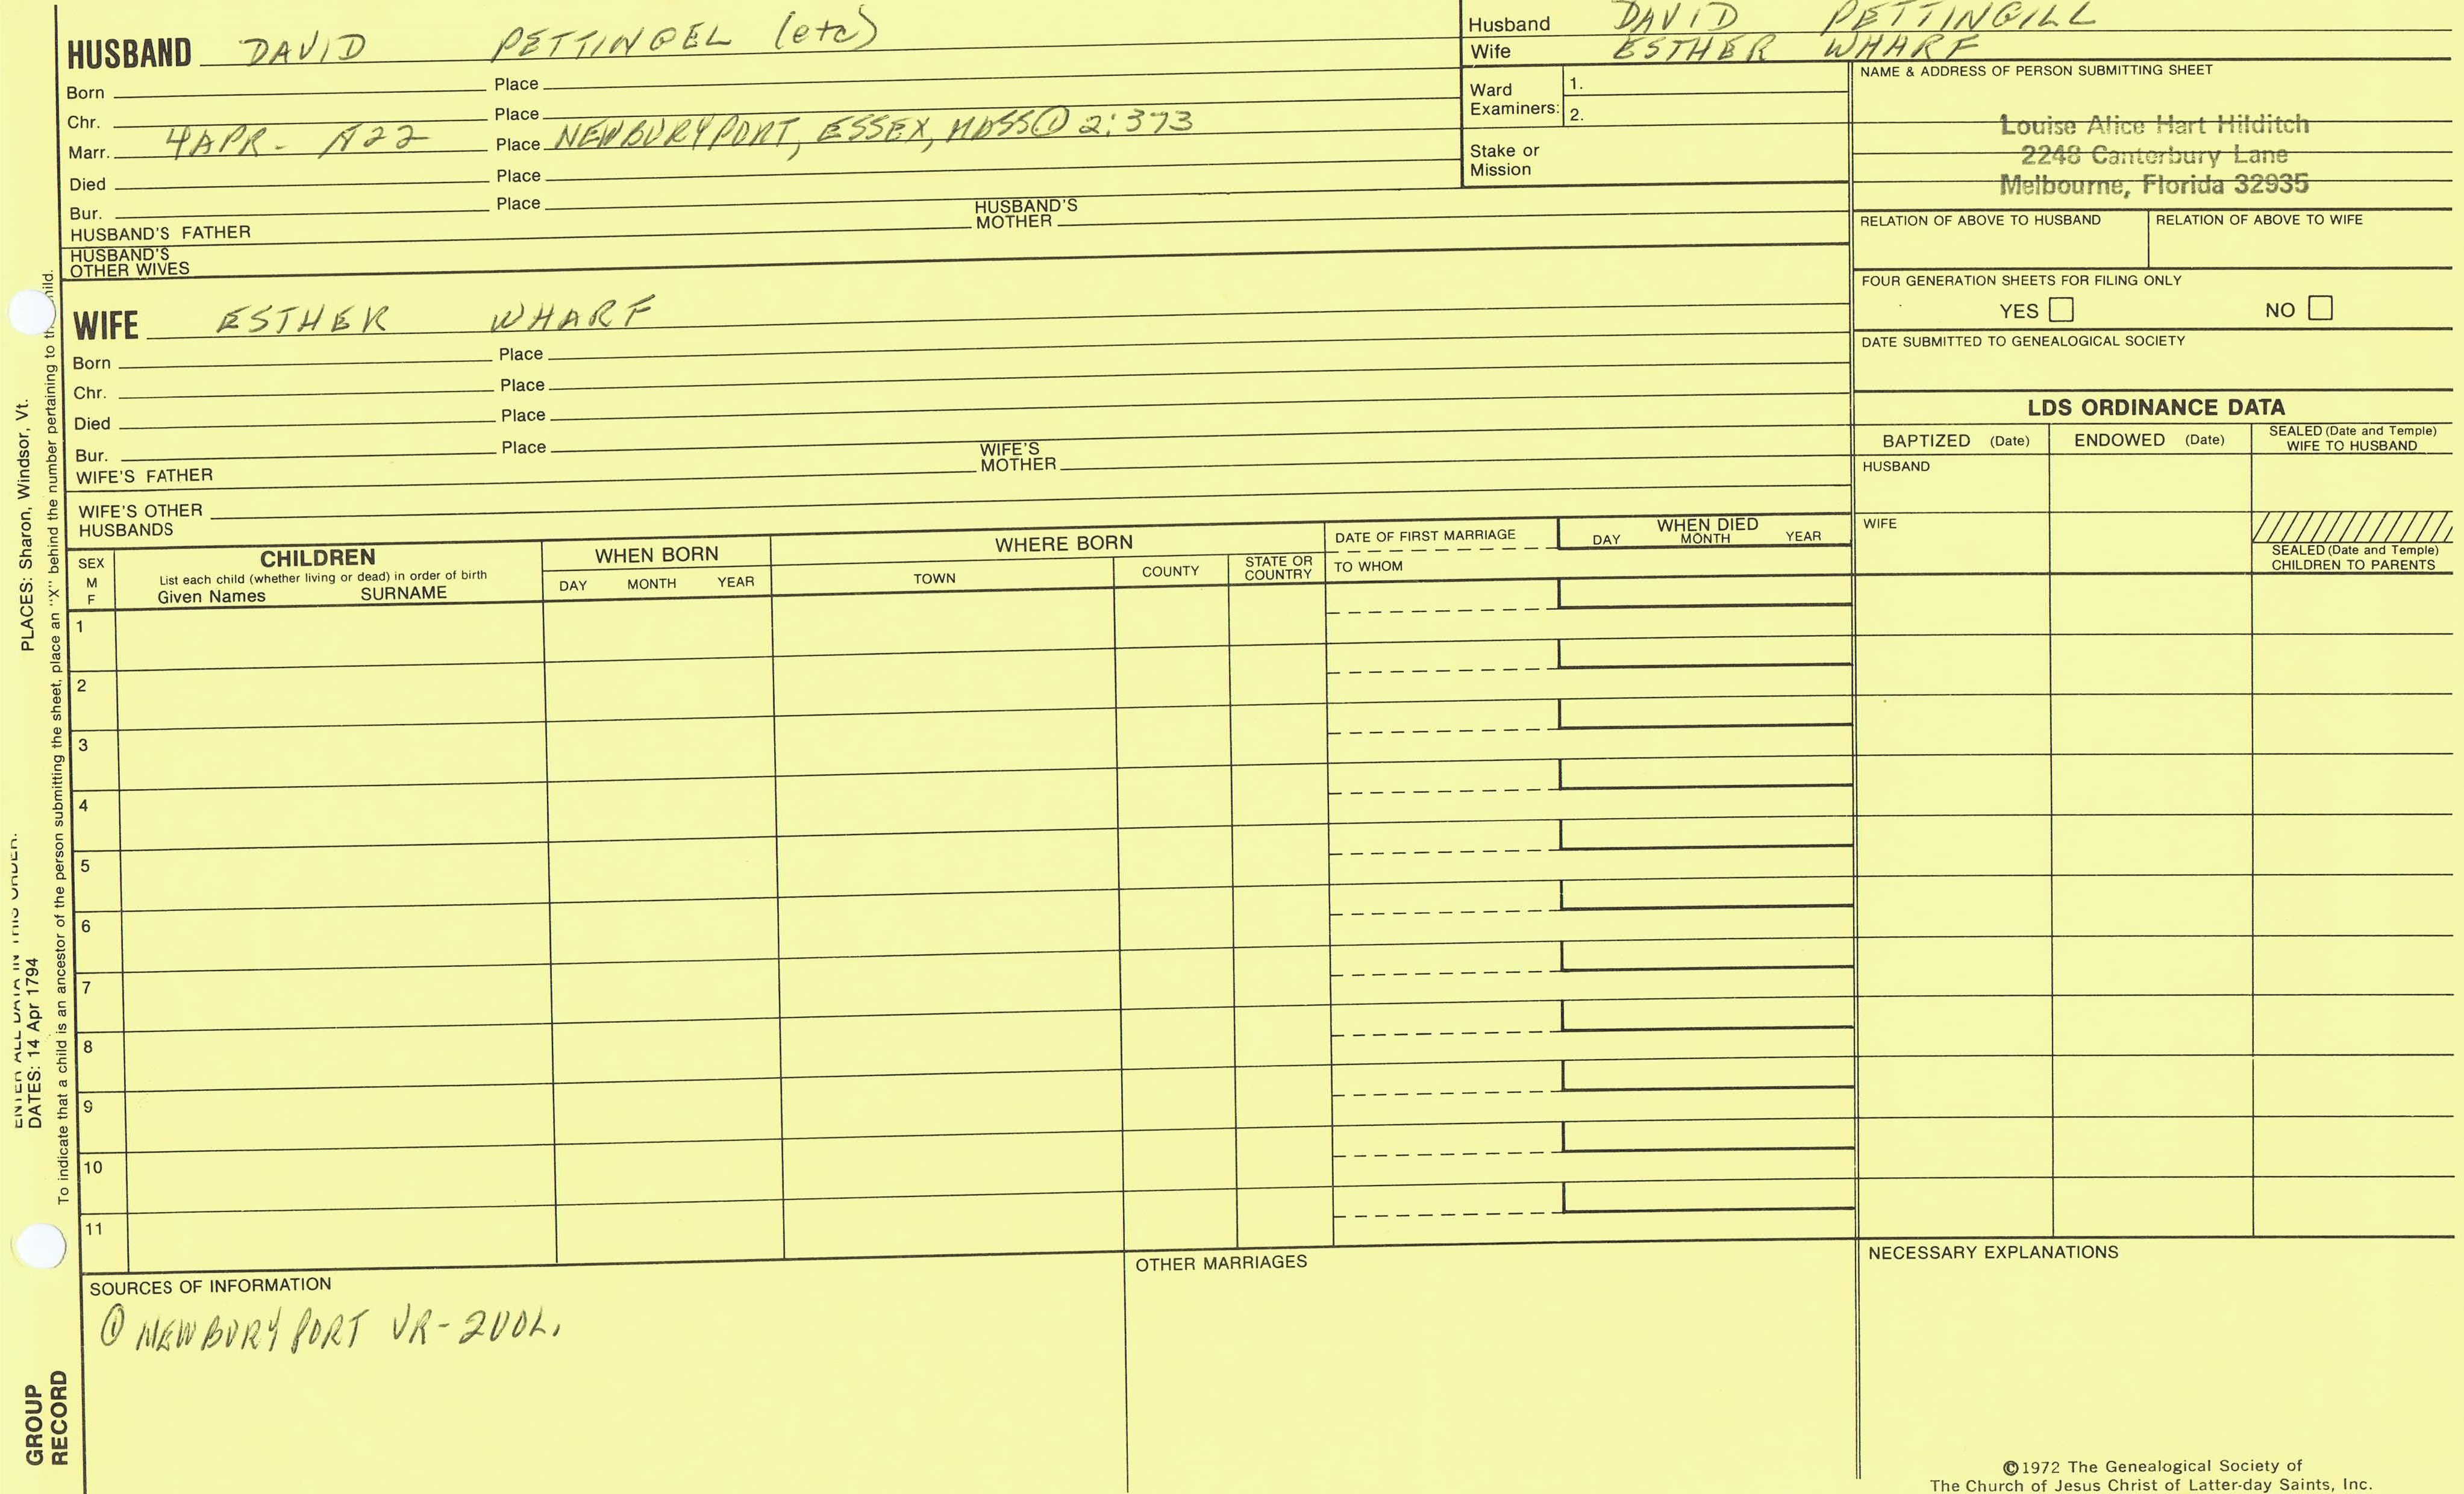 HUSBAND DAVID PETTINGEL (etc)
Born Place
Chr. Place
Marr. 4 APR - Place NEWBURYPORT, ESSEX, MASS ① 2:373
Died Place
Bur. Place
HUSBAND'S FATHER HUSBAND'S MOTHER
HUSBAND'S OTHER WIVES
Husband DAVID PETTINGILL
Wife ESTHER WHARF
Ward Examiners: 1.
2.
Stake or Mission
NAME & ADDRESS OF PERSON SUBMITTING SHEET
Louise Alice Hart Hilditch
2248 Canterbury Lane
Melbourne, Florida 32935
RELATION OF ABOVE TO HUSBAND RELATION OF ABOVE TO WIFE
FOUR GENERATION SHEETS FOR FILING ONLY
YES NO
DATE SUBMITTED TO GENEALOGICAL SOCIETY
WIFE ESTHER WHARF
Born Place
Chr. Place
Died Place
Bur. Place
WIFE'S FATHER WIFE'S MOTHER
WIFE'S OTHER HUSBANDS
LDS ORDINANCE DATA
BAPTIZED (Date) ENDOWED (Date) SEALED (Date and Temple) WIFE TO HUSBAND
HUSBAND
WIFE
SEALED (Date and Temple) CHILDREN TO PARENTS
SEX M F
CHILDREN
List each child (whether living or dead) in order of birth
Given Names SURNAME
WHEN BORN
DAY MONTH YEAR
WHERE BORN
TOWN COUNTY STATE OR COUNTRY
DATE OF FIRST MARRIAGE
TO WHOM
WHEN DIED
DAY MONTH YEAR
1
2
3
4
5
6
7
8
9
10
11
SOURCES OF INFORMATION
① NEWBURYPORT VR - 2VOL.
OTHER MARRIAGES
NECESSARY EXPLANATIONS
©1972 The Genealogical Society of
The Church of Jesus Christ of Latter-day Saints, Inc.
ENTER ALL DATA IN THIS ORDER:
DATES: 14 Apr 1794 PLACES: Sharon, Windsor, Vt.
To indicate that a child is an ancestor of the person submitting the sheet, place an "X" behind the number pertaining to child.
GROUP
RECORD